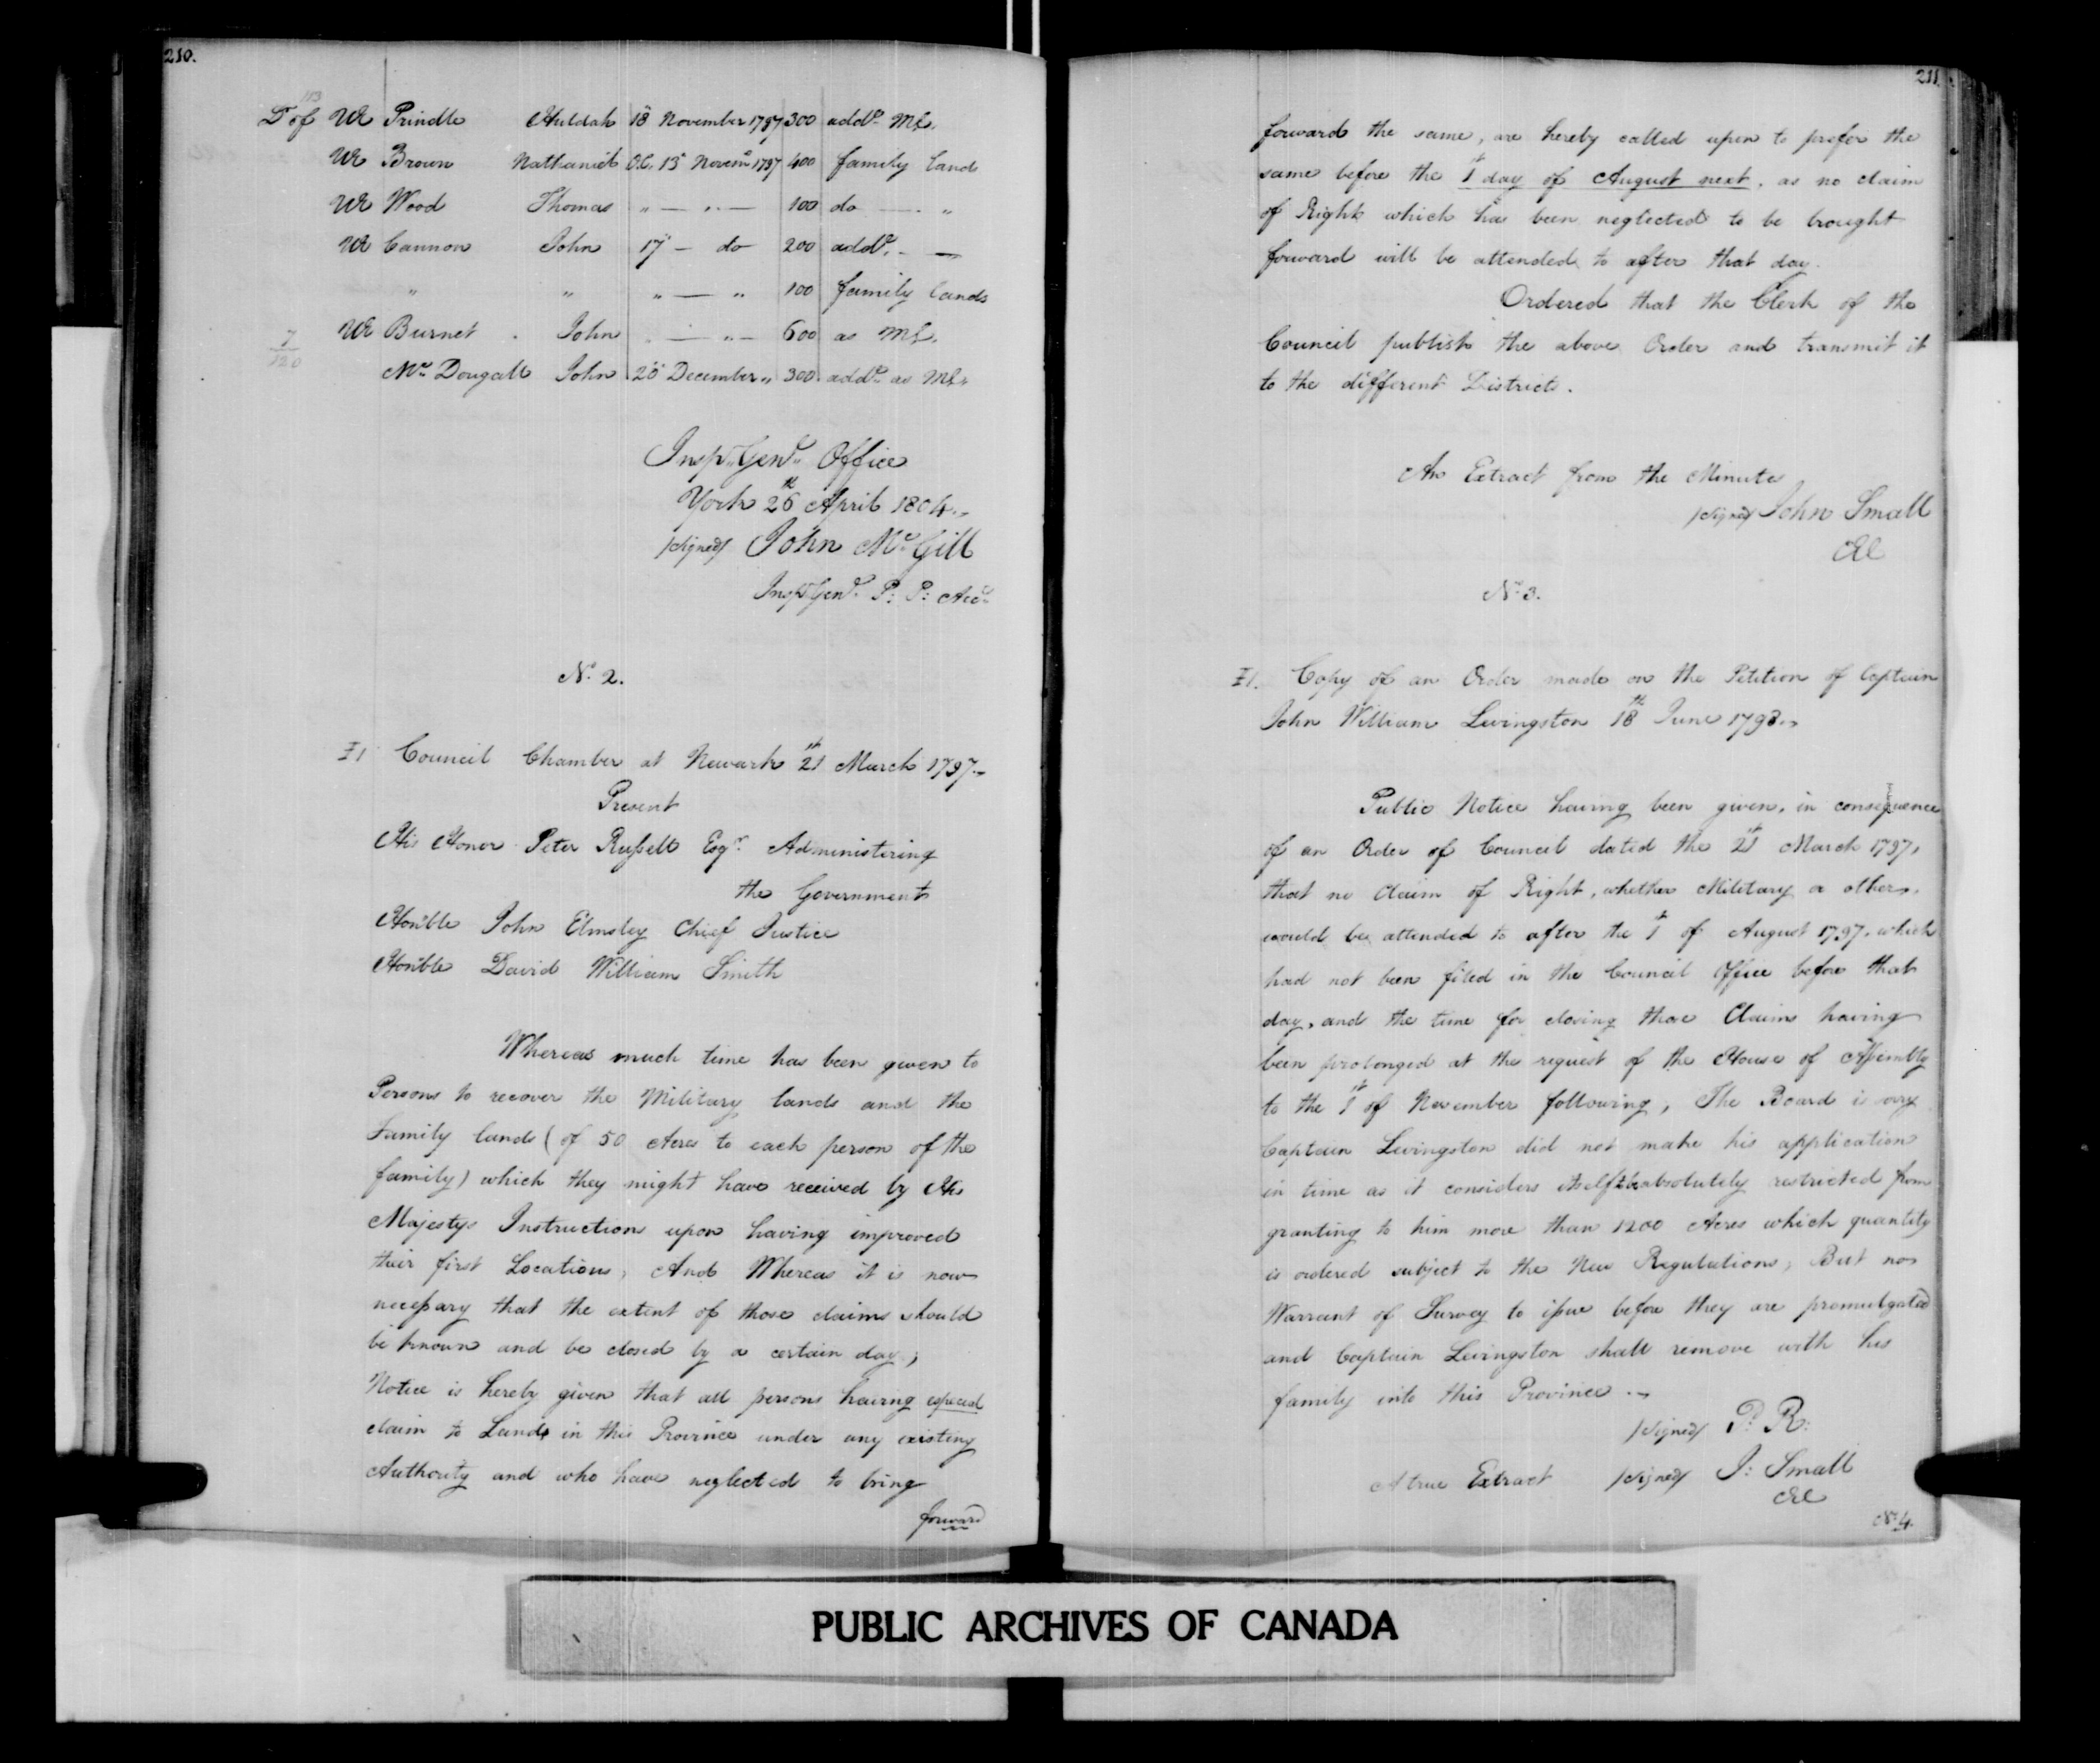 210.
113
D of UE Prindle Huldah 18 November 1797 300 addl. ML.
UE Brown Nathaniel O.C. 13 Novem 1797 400 family land
UE Wood Thomas " — " — 100 do — "
UE Cannon John 17 — do 200 addl. - —
" " " — " 100 family lands
7
120
UE Burnet . John " — " — 600 as ML.
Mc Dougall John 20 December " 300 addl. as ML"
Insp. Genl. Office
York 26th April 1804.
/signed/ John Mc Gill
Insp Genl. P: P: Acc
No. 2.
Council Chamber at Newark 21st March 1797.
Present
His Honor Peter Russell Esqr. Administering
the Government
Honble John Elmsley Chief Justice
Honble David William Smith
Whereas much time has been given to
Persons to recover the Military lands and the
Family lands (of 50 Acres to each person of the
family) which they might have received by His
Majestys Instructions upon having improved
their first Locations, And Whereas it is now
necessary that the extent of those claims should
be known and be closed by a certain day;
Notice is hereby given that all persons having especial
claim to Lands in this Province under any existing
Authority and who have neglected to bring
forward
211.
forward the same, are hereby called upon to prefer the
same before the 1st day of August next, as no claim
of Right which has been neglected to be brought
forward will be attended to after that day.
Ordered that the Clerk of the
Council publish the above Order and transmit it
to the different Districts.
An Extract from the Minutes
/signed/ John Small
CEC
No. 3.
Copy of an Order made on the Petition of Captain
John William Livingston 18th June 1798.
Public Notice having been given, in consequence
of an Order of Council dated the 21st March 1797,
that no Claim of Right, whether Military or other,
would be attended to after the 1st of August 1797, which
had not been filed in the Council Office before that
day, and the time for closing those Claims having
been prolonged at the request of the House of Assembly
to the 1st of November following, The Board is sorry
Captain Livingston did not make his application
in time as it considers itself to be absolutely restricted from
granting to him more than 1200 Acres which quantity
is ordered subject to the New Regulations, But no
Warrant of Survey to issue before they are promulgated
and Captain Livingston shall remove with his
family into this Province.
/signed/ P. R:
A true Extract /signed/ J: Small
CEC
No. 4.
PUBLIC ARCHIVES OF CANADA